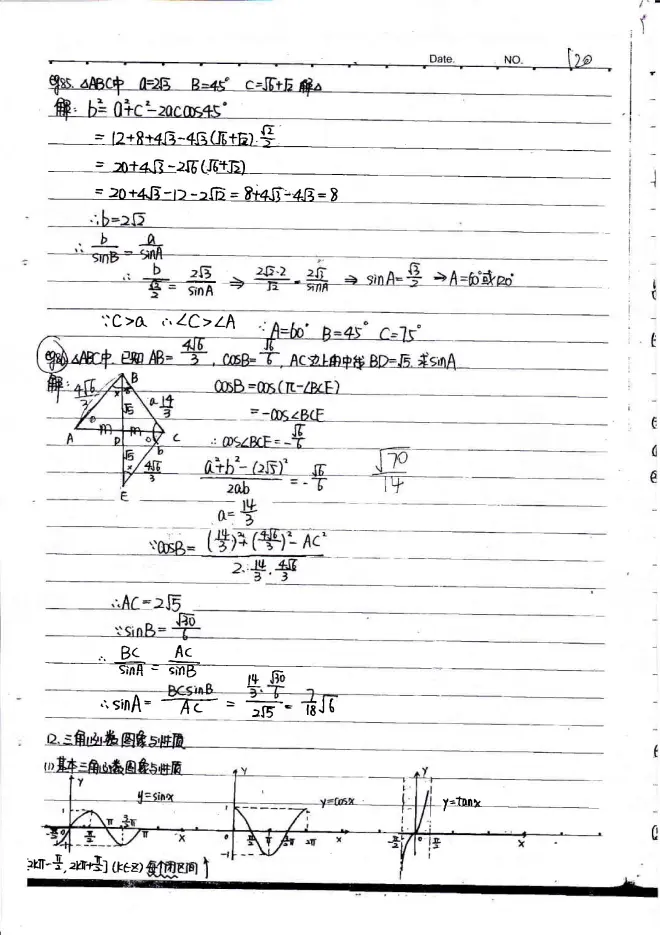 Date. NO. 120
eg85. △ABC中 a=2√3 B=45° C=√6+√2 解△
解: b²=a²+c²-2accos45°
=12+8+4√3-4√3(√6+√2)·√2/2
=20+4√3-2√6(√6+√2)
=20+4√3-12-2√12=8+4√3-4√3=8
∴b=2√2
∴ b/sinB = a/sinA
∴ b/(√2/2) = 2√3/sinA ⇒ 2√2·2/√2 = 2√3/sinA ⇒ sinA=√3/2 ⇒A=60°或120°
∵C>a ∴∠C>∠A ∴A=60° B=45° C=75°
eg86 △ABC中. 已知 AB=4√6/3, cosB=√6/6, AC边上的中线 BD=√5. 求sinA
解: 4√6/3 B x √5 a 14/3
A m D m C
√5 x b 4√6/3
E
cosB=cos(π-∠BCE)
=-cos∠BCE
∴cos∠BCE=-√6/6
(a²+b²-(2√5)²)/2ab = -√6/6 √70/14
a=14/3
∵cosB= ((14/3)²+(4√6/3)²-AC²)/(2·14/3·4√6/3)
∴AC=2√5
∵sinB=√30/6
∴ BC/sinA = AC/sinB
∴sinA= BCsinB/AC = (14/3·√30/6)/2√5 = 7/18√6
12.三角函数图象与性质
(1)基本三角函数图象与性质
y y=sinx 1 -π/2 0 π/2 π 3/2π x -1
y y=cosx 1 0 π/2 π 3/2π 2π x -1
y y=tanx -π/2 0 π/2 x
[2kπ-π/2, 2kπ+π/2] (k∈Z) 每个闭区间↑